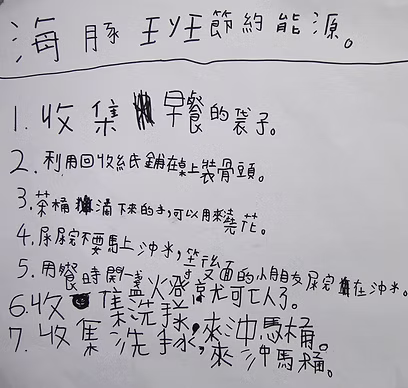 海豚班節約能源。
1. 收集早餐的袋子。
2. 利用回收紙鋪在桌上裝骨頭。
3. 茶桶滴下來的水,可以用來澆花。
4. 尿尿完不要馬上沖水,等後面的小朋友尿完在沖水。
5. 用餐時開一盞火燈就可以了。
6. 收集洗手水,來沖馬桶。
7. 收集洗手水,來沖馬桶。